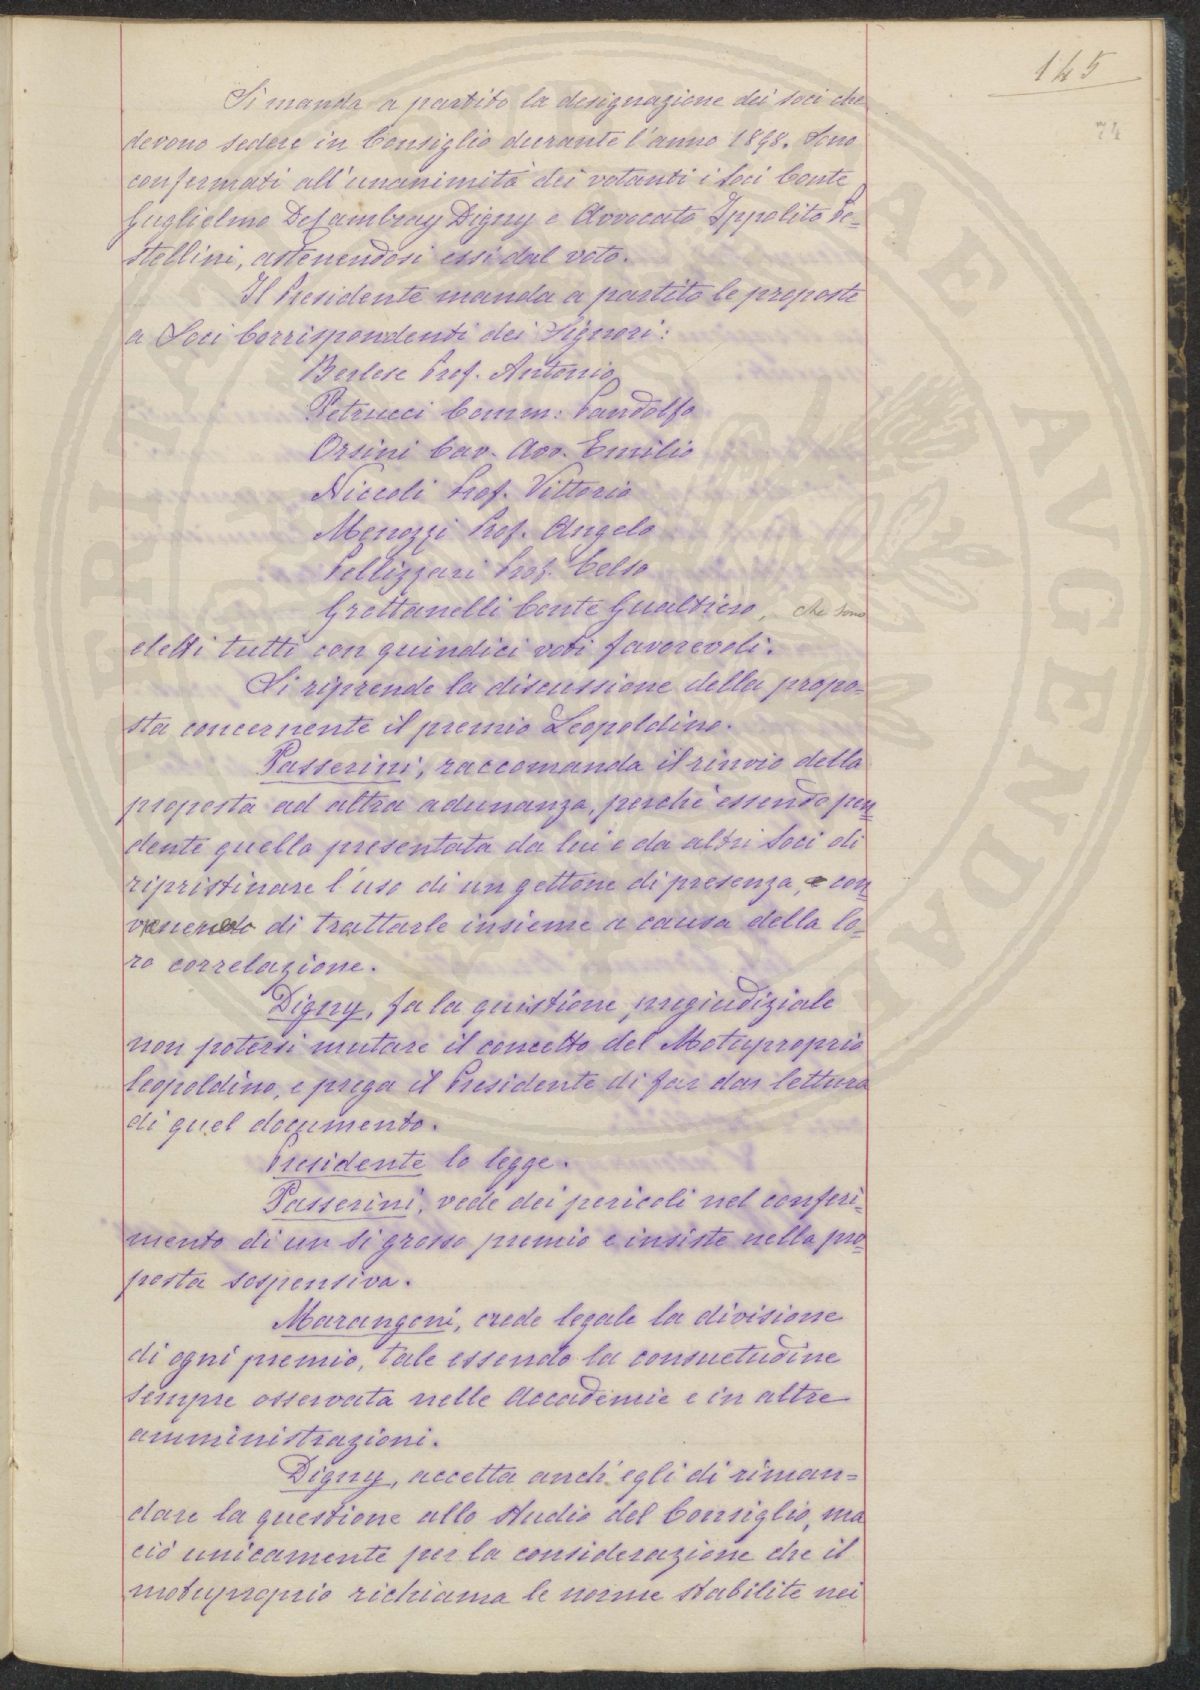 145
74
Si manda a partito la designazione dei soci che
devono sedere in Consiglio durante l'anno 1898. Sono
confermati all'unanimità dei votanti i Soci Conte
Guglielmo DeCambray Digny e Avvocato Ippolito Pe=
stellini, astenendosi essi dal voto.
Il Presidente manda a partito le proposte
a Soci Corrispondenti dei Signori:
Berlese Prof. Antonio
Petrucci Comm: Pandolfo
Orsini Cav. Avv. Emilio
Niccoli Prof. Vittorio
Menozzi Prof. Angelo
Pellizzari Prof. Celso
Grottanelli Conte Gualtiero, che sono
eletti tutti con quindici voti favorevoli.
Si riprende la discussione della propo=
sta concernente il premio Leopoldino.
Passerini, raccomanda il rinvio della
proposta ad altra adunanza, perchè essendo pen=
dente quella presentata da lui e da altri Soci di
ripristinare l'uso di un gettone di presenza, e con=
venendo di trattarle insieme a causa della lo=
ro correlazione.
Digny, fa la quistione pregiudiziale
non potersi mutare il concetto del Motuproprio
leopoldino, e prega il Presidente di far dar lettura
di quel documento.
Presidente lo legge.
Passerini, vede dei pericoli nel conferi=
mento di un si grosso premio e insiste nella pro=
posta sospensiva.
Marangoni, crede legale la divisione
di ogni premio, tale essendo la consuetudine
sempre osservata nelle Accademie e in altre
amministrazioni.
Digny, accetta anch'egli di riman=
dare la questione allo studio del Consiglio, ma
ciò unicamente per la considerazione che il
motuproprio richiama le norme stabilite nei